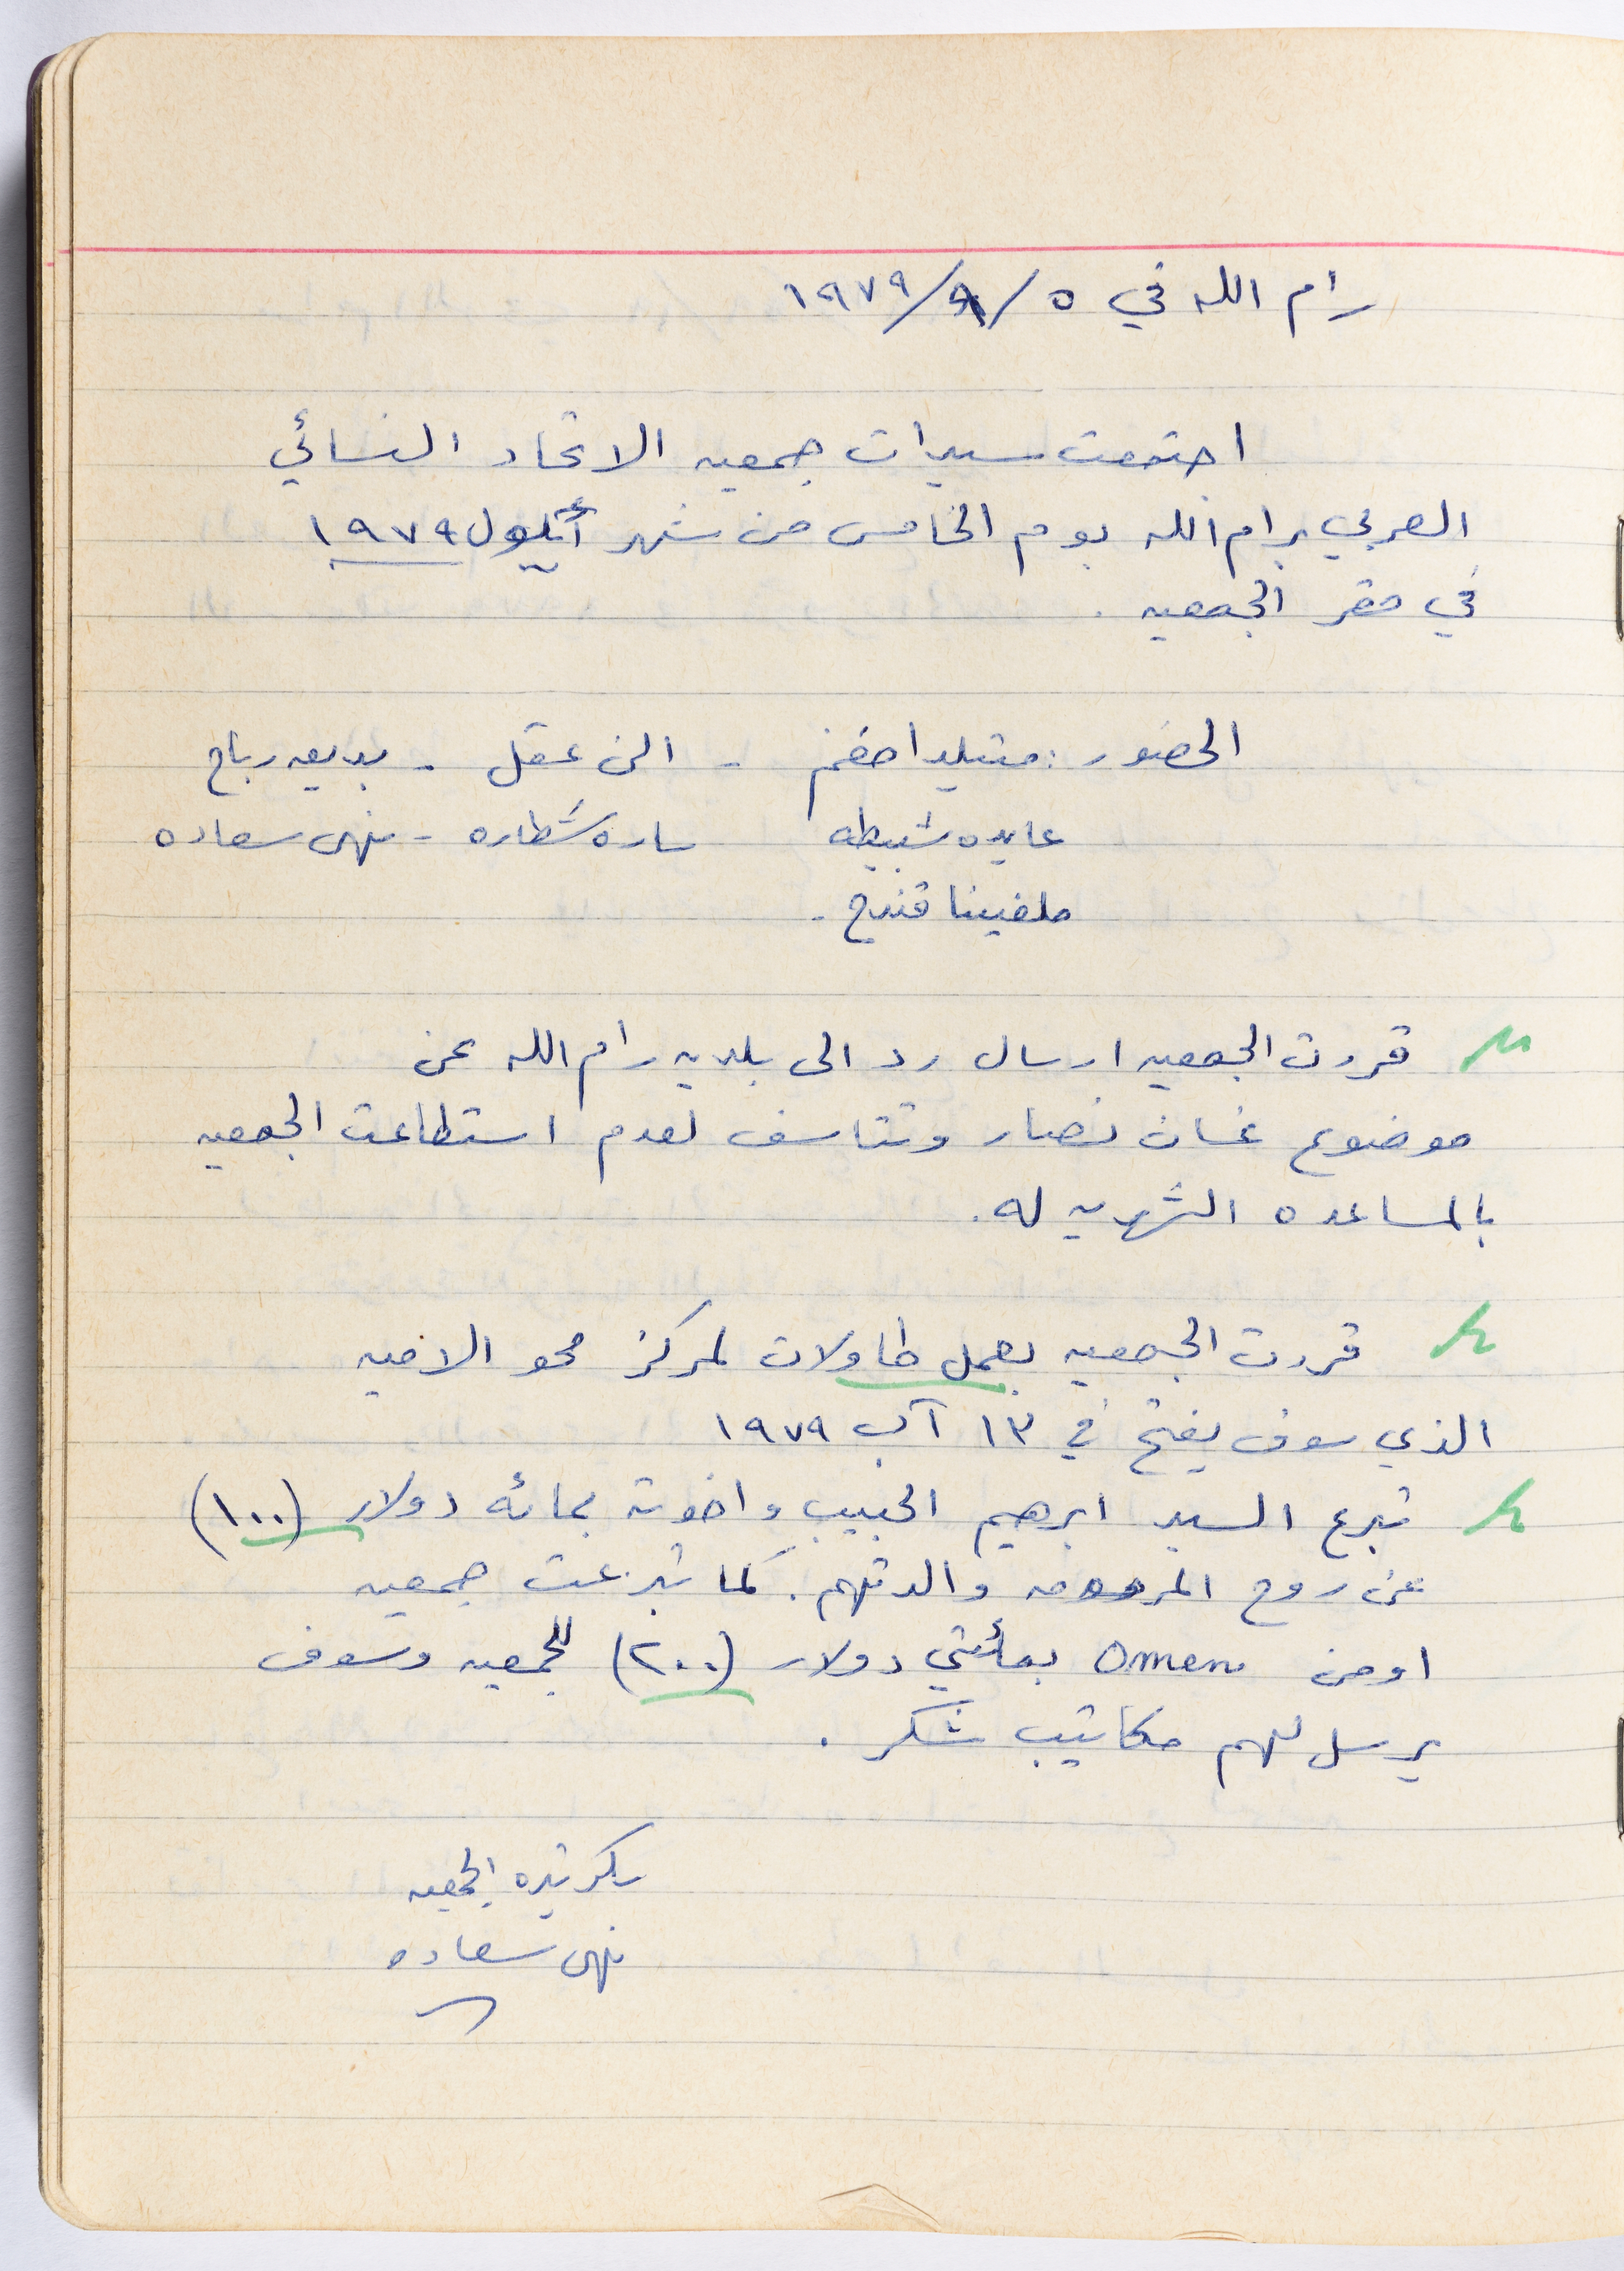 رام الله في ٥/٩/١٩٧٩
اجتمعت سيدات جمعيه الاتحاد النسائي
العربي برام الله يوم الخامس من شهر أيلول ١٩٧٩
في مقر الجمعيه .
الحضور : متيلدا مغنم - الن عقل - بديعه رباح
عايده شبيطه ساره شطاره - نهى سعاده
ملفينا قندح -
قررت الجمعيه ارسال رد الى بلديه رام الله عن
موضوع غسان نصار وتتاسف لعدم استطاعت الجمعيه
بالمساعده الشهريه له .
قررت الجمعيه بعمل طاولات لمركز محو الاميه
الذي سوف يفتح في ١٣ آب ١٩٧٩
تبرع السيد ابرهيم الحبيب واخوته بمائه دولار (١٠٠)
عن روح المرحومه والدتهم . كما تبرعت جمعيه
اومن Omen بمأتي دولار (٢٠٠) للجمعيه وسوف
يرسل لهم مكاتيب شكر .
سكرتيره الجمعيه
نهى سعاده